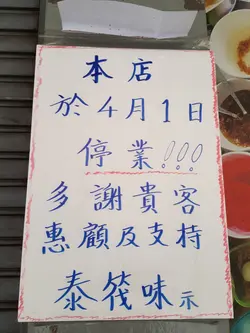 本店
於4月1日
停業!!!
多謝貴客
惠顧及支持
泰筏味示